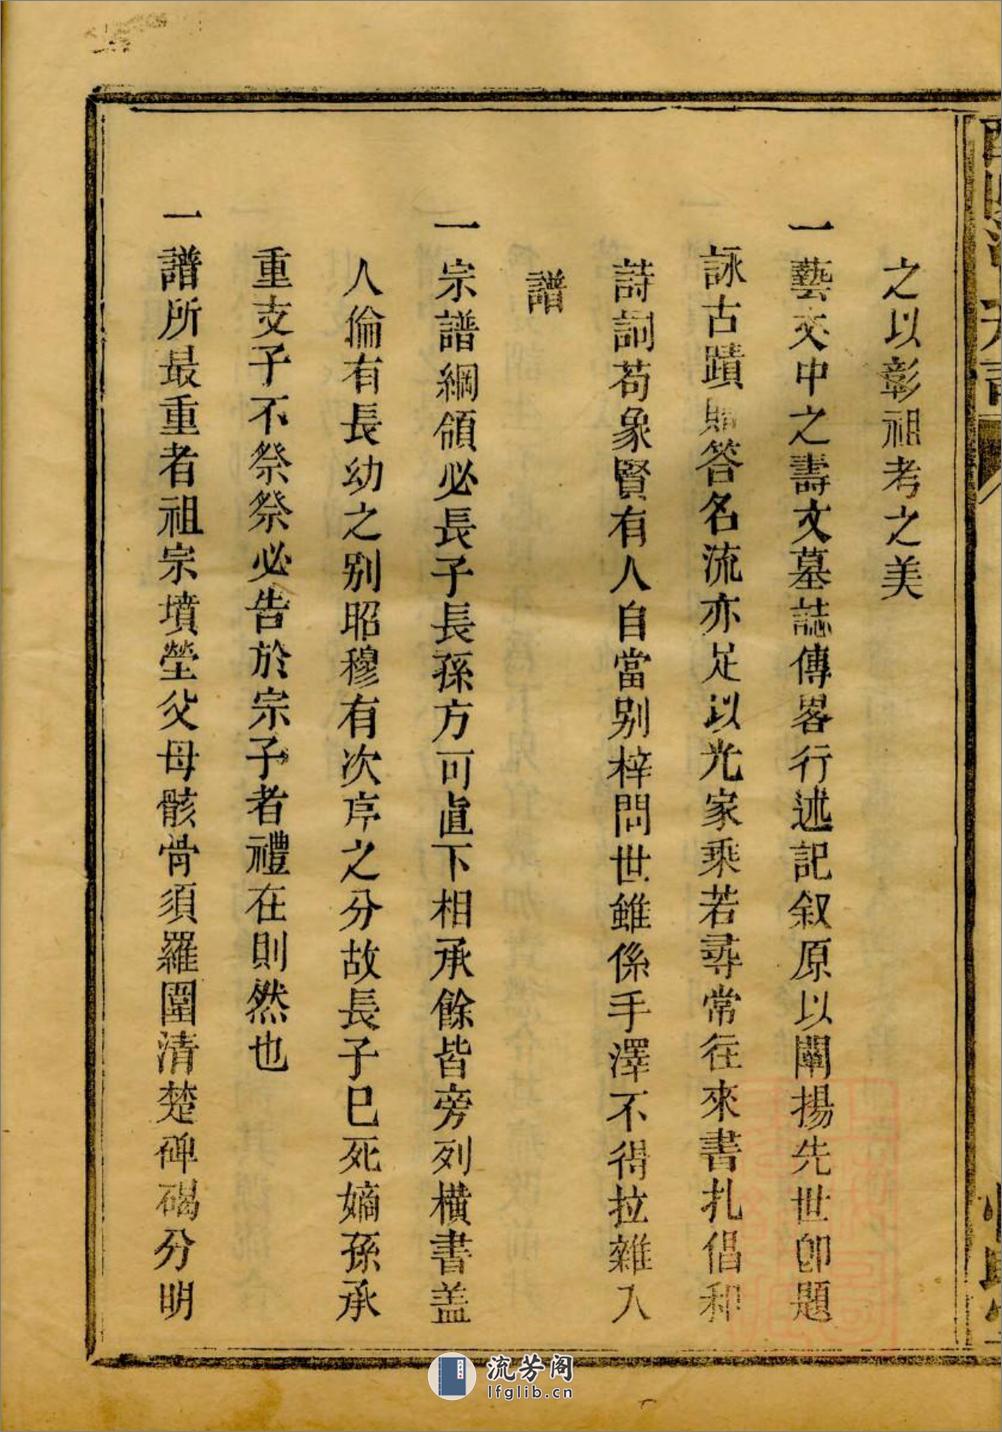 之以彰祖考之美
一藝文中之壽文墓誌傳畧行述記叙原以闡揚先世卽題
詠古蹟贈答名流亦足以光家乘若尋常往來書扎倡和
詩詞苟象賢有人自當别梓問世雖係手澤不得拉雜入
譜
一宗譜綱領必長子長孫方可直下相承餘皆旁列橫書盖
人倫有長幼之别昭穆有次序之分故長子已死嫡孫承
重支子不祭祭必告於宗子者禮在則然也
一譜所最重者祖宗墳塋父母骸骨須羅圍清楚碑碣分明
流芳阁
lfglib.cn